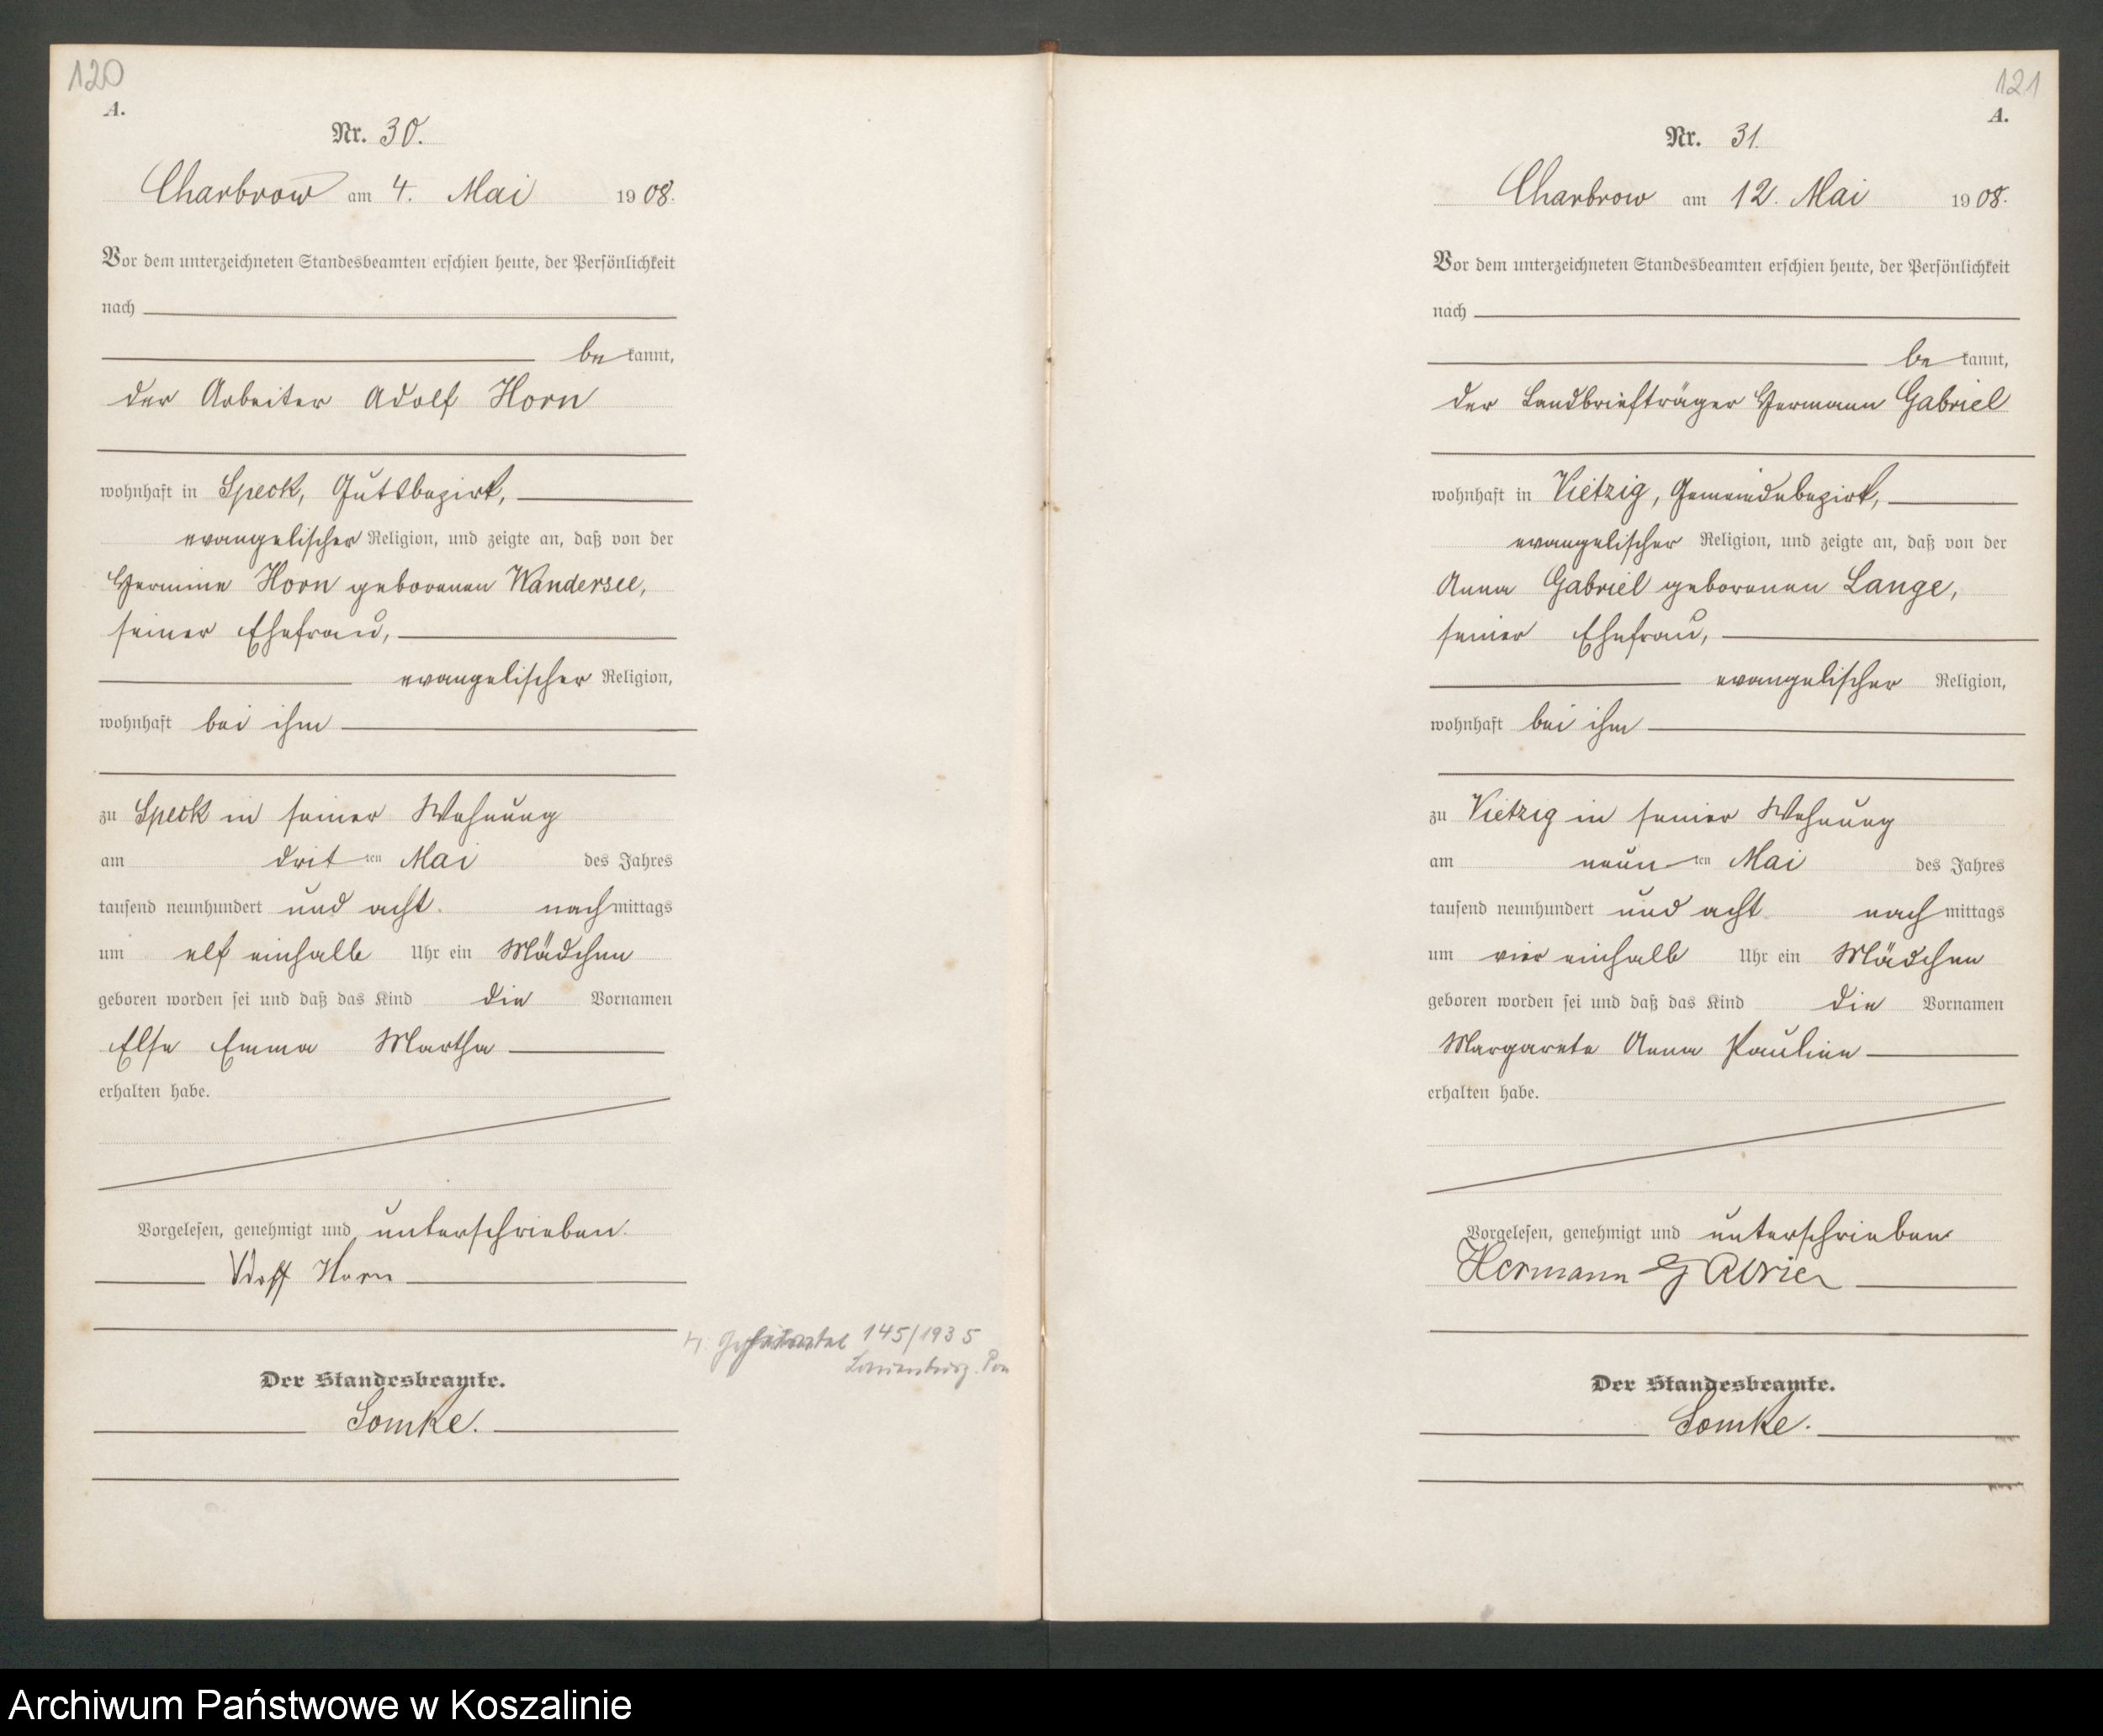 120
A.
Nr. 30.
Charbrow am 4. Mai 1908.
Vor dem unterzeichneten Standesbeamten erschien heute, der Persönlichkeit
nach
be kannt,
der Arbeiter Adolf Horn
wohnhaft in Speck, Gutsbezirk,
evangelischer Religion, und zeigte an, daß von der
Hermine Horn geborenen Wandersee,
seiner Ehefrau,
evangelischer Religion,
wohnhaft bei ihm
zu Speck in seiner Wohnung
am drit ten Mai des Jahres
tausend neunhundert und acht nachmittags
um elf einhalb Uhr ein Mädchen
geboren worden sei und daß das Kind die Vornamen
Else Emma Martha
erhalten habe.
Vorgelesen, genehmigt und unterschrieben.
Adolf Horn
145/1935
Lauenburg. Pom
Der Standesbeamte.
Lomke.
121
A.
Nr. 31.
Charbrow am 12. Mai 1908.
Vor dem unterzeichneten Standesbeamten erschien heute, der Persönlichkeit
nach
be kannt,
der Landbriefträger Hermann Gabriel
wohnhaft in Vietzig, Gemeindebezirk,
evangelischer Religion, und zeigte an, daß von der
Anna Gabriel geborenen Lange,
seiner Ehefrau,
evangelischer Religion,
wohnhaft bei ihm
zu Vietzig in seiner Wohnung
am neun ten Mai des Jahres
tausend neunhundert und acht nachmittags
um vier einhalb Uhr ein Mädchen
geboren worden sei und daß das Kind die Vornamen
Margarete Anna Pauline
erhalten habe.
Vorgelesen, genehmigt und unterschrieben
Hermann Gabriel
Der Standesbeamte.
Lomke.
Archiwum Państwowe w Koszalinie